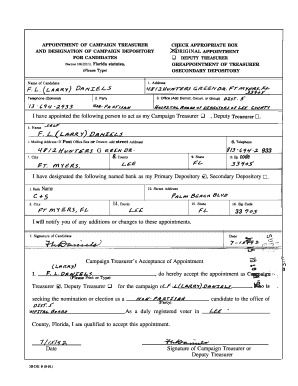 APPOINTMENT OF CAMPAIGN TREASURER
AND DESIGNATION OF CAMPAIGN DEPOSITORY
FOR CANDIDATES
Florida statutes,
(Please Type)
CHECK APPROPRIATE BOX
ORIGINAL APPOINTMENT
DEPUTY TREASURER
REAPPOINTMENT OF TREASURER
SECONDARY DEPOSITORY
Name of Candidate
F. L. (LARRY) DANIELS
1. Address
4812 HUNTERS GREEN DR. FT MYERS, FL
33905
Telephone (Optional)
813 694-2933
2. Party
NON-PARTISAN
3. Office (Add District, Circuit, or Group) DIST. 5
HOSPITAL BOARD OF DIRECTORS OF LEE COUNTY
I have appointed the following person to act as my Campaign Treasurer , Deputy Treasurer .
Name SELF
F. L. (LARRY) DANIELS
Mailing Address: If Post Office Box or Drawer add street Address
4812 HUNTERS GREEN DR.
8. Telephone
813-694-2933
City
FT MYERS,
County
LEE
State
FL
Zip Code
33905
I have designated the following named bank as my Primary Depository , Secondary Depository .
Bank Name
C + S
Street Address
PALM BEACH BLVD
City
FT MYERS, FL
County
LEE
State
FL
Zip Code
33903
I will notify you of any additions or changes to these appointments.
Signature of Candidate
F L Daniels
Date
Campaign Treasurer's Acceptance of Appointment
(LARRY)
I, F. L. DANIELS do hereby accept the appointment as Campaign
(Please Print or Type)
Treasurer , Deputy Treasurer for the campaign of F. L. (LARRY) DANIELS who is
seeking the nomination or election as a NON-PARTISAN candidate to the office of
(Party)
DIST. 5
HOSPITAL BOARD As a duly registered voter in LEE
County, Florida, I am qualified to accept this appointment.
7/15/92
Date
F L Daniels
Signature of Campaign Treasurer or
Deputy Treasurer